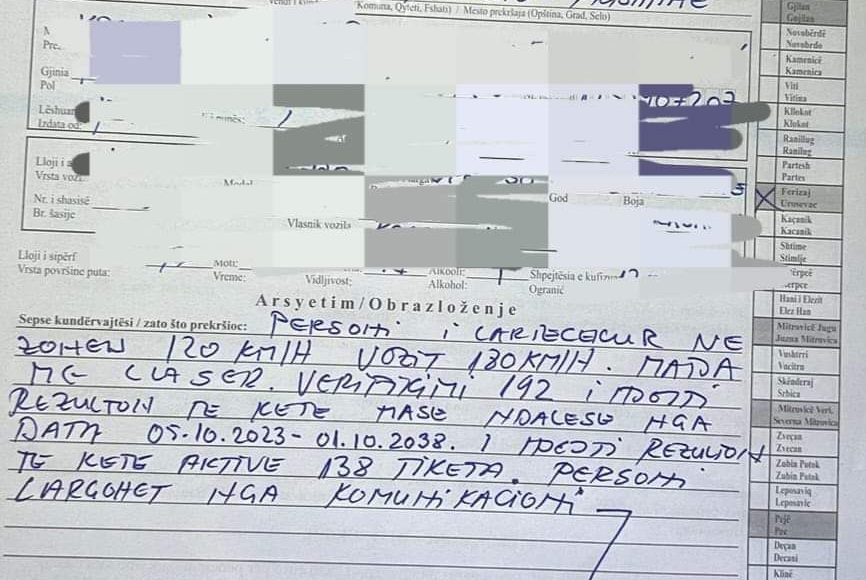 Komuna, Qyteti, Fshati) / Mesto prekršaja (Opština, Grad, Selo)
Gjinia
Pol
Lëshuar
Izdata od:
Lloji i
Vrsta vozi
Nr. i shasisë
Br. šasije
Vlasnik vozila
God
Boja
Lloji i sipërf
Vrsta površine puta:
Moti:
Vreme:
Vidljivost:
Alkooli:
Alkohol:
Shpejtësia e kufizu
Ogranič
Arsyetim/Obrazloženje
Sepse kundërvajtësi / zato što prekršioc: PERSONI I LARTECEKUR NE
ZONEN 120 KM/H VOZIT 180KM/H. MATJA
ME LLASER. VERIFIKIMI 192 I NJEJTI
REZULTON TE KETE MASE NDALESE NGA
DATA 05.10.2023 - 01.10.2038. I NJEJTI REZULTON
TE KETE AKTIVE 138 TIKETA. PERSONI
LARGOHET NGA KOMUNIKACIONI
Gjilan
Gnjilan
Novobërdë
Novobrdo
Kamenicë
Kamenica
Viti
Vitina
Kllokot
Klokot
Ranillug
Ranilug
Partesh
Partes
Ferizaj
Urosevac
Kaçanik
Kacanik
Shtime
Stimlje
Hani i Elezit
Elez Han
Mitrovicë Jugu
Juzna Mitrovica
Vushtrri
Vucitrn
Skënderaj
Srbica
Mitrovicë Veri.
Severna Mitrovica
Zveçan
Zvecan
Zubin Potok
Zubin Potok
Leposaviq
Leposavic
Pejë
Pec
Deçan
Decani
Klinë